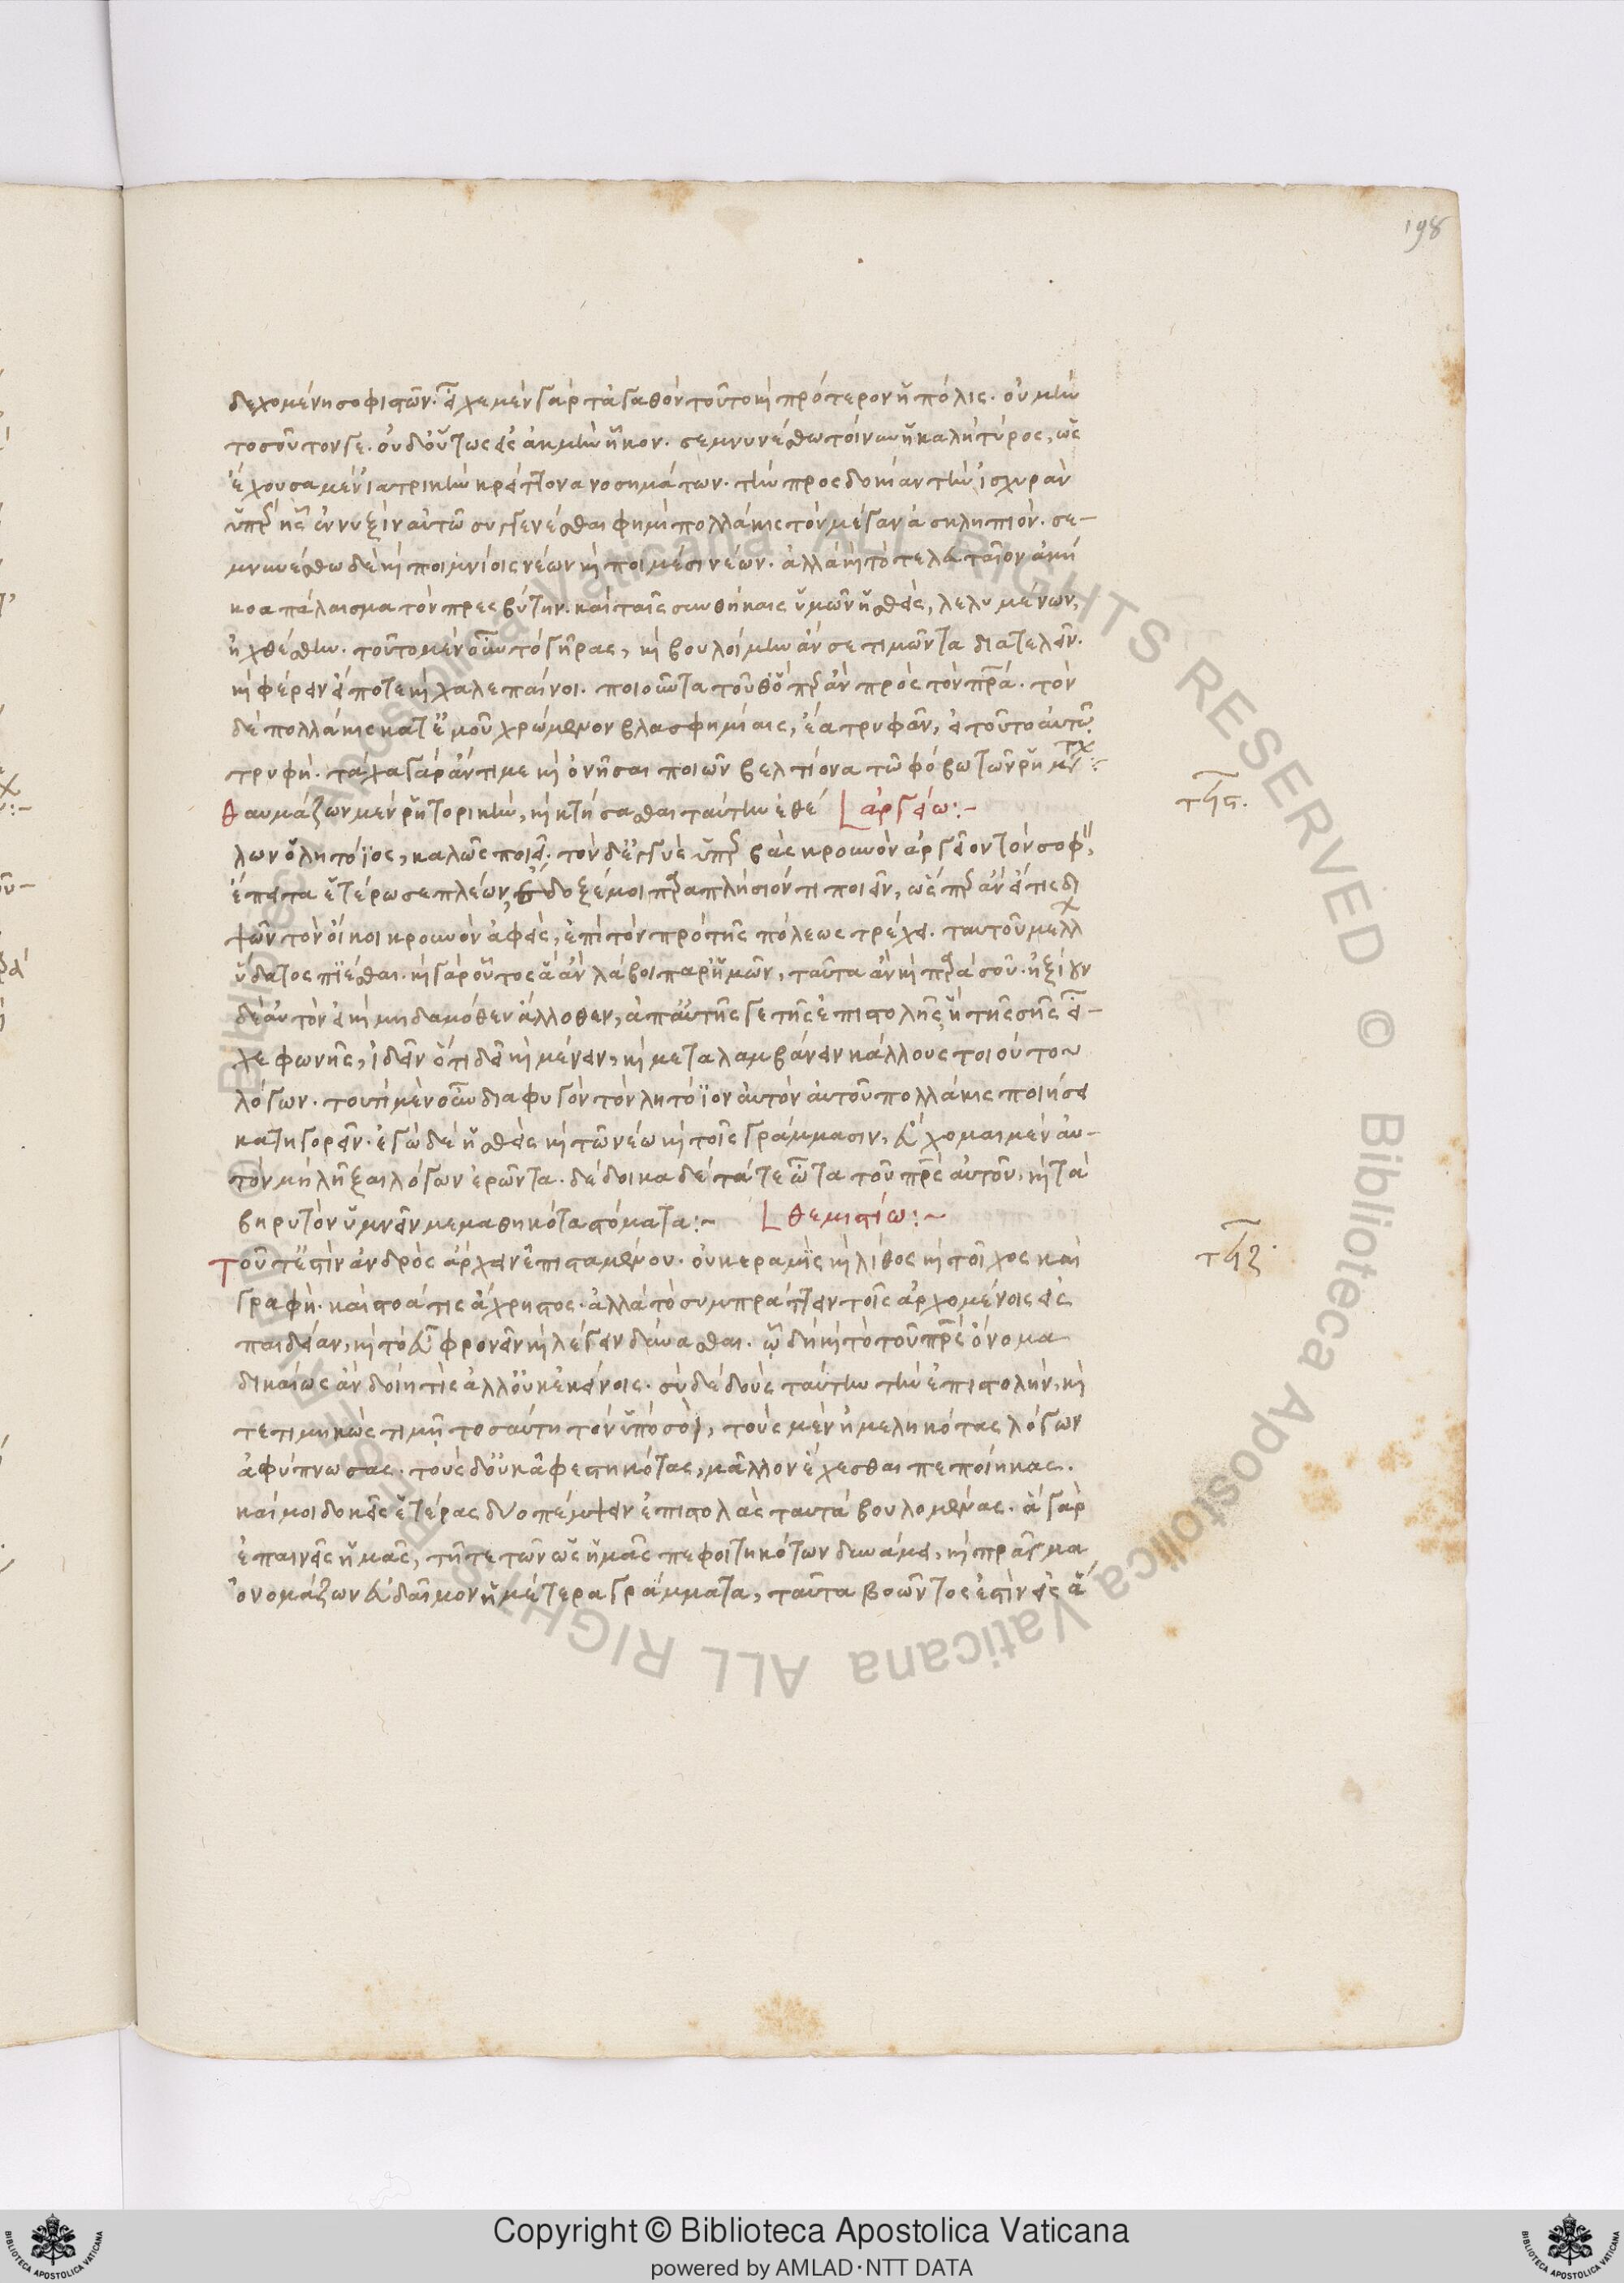 198
δεχομένη σοφιστῶν. εἶχε μὲν γὰρ τἀγαθὸν τοῦτο καὶ πρότερον ἡ πόλις. οὐ μὴν
τοσοῦτόν γε. οὐδ' οὕτως εἰς ἀκμὴν ἧκον. σεμνυνέσθω τοίνυν ἡ καλὴ τύρος, ὡς
ἔχουσα μὲν ἰατρικὴν κρείττονα νοσημάτων. τὴν προσδοκίαν τὴν ἰσχυρὰν
ὑπὲρ ἧς ἐν νυξὶν αὐτῷ συγγενέσθαι φημὶ πολλάκις τὸν μέγαν ἀσκληπιόν. σε-
μνυνέσθω δὲ καὶ ποιμνίοις νέων καὶ ποιμέσι νέων. ἀλλὰ καὶ τὸ τελευταῖον ἀκή
κοα πάλαισμα τὸν πρεσβύτην. καὶ ταῖς συνθήκαις ὑμῶν ἥσθεὶς, λελυμένων,
ἠχθέσθην. τοῦτο μὲν οὖν τὸ γῆρας, καὶ βουλοίμην ἄν σε τιμῶντα διατελεῖν.
καὶ φέρειν εἴ ποτε καὶ χαλεπαίνοι. ποιοῦντα τοῦθ' ὅπερ ἂν πρὸς τὸν πρα. τὸν
δὲ πολλάκις κατ' ἐμοῦ χρώμενον βλασφημίαις, ἔα τρυφᾶν, εἰ τοῦτο αὐτῷ
τρυφή. τάχα γὰρ ἄν τι με καὶ ὀνῆσαι ποιῶν βελτίονα τῷ φόβῳ τῶν ῥημάτ:
θαυμάζων μὲν ῥητορικὴν, καὶ κτήσασθαι ταύτην ἐθέ ἀργείω:-
τϞϛ.
λων ὁ λητόϊος, καλῶς ποιεῖ. τὸν δ' ἐγγὺς ὑπερβὰς κρουνὸν ἀργεῖον τὸν σοφ,
ἔπειτα ἑτέρωσε πλέων, ἔδοξέ μοι παραπλήσιόν τι ποιεῖν, ὥσπερ ἂν εἴ τις δι
ψῶν τὸν οἴκοι κρουνὸν ἀφεὶς, ἐπὶ τὸν πρὸ τῆς πόλεως τρέχει. ταυτοῦ μέλλ
ὕδατος πίεσθαι. καὶ γὰρ οὗτος ἃ ἂν λάβοι παρ' ἡμῶν, ταῦτα ἂν καὶ παρὰ σοῦ. ἠξίουν
δὲ αὐτὸν εἰ καὶ μηδαμόθεν ἄλλοθεν, ἀπ' αὐτῆς γε τῆς ἐπιστολῆς ἣ τῆς σῆς εἶ-
χε φωνῆς, ἰδεῖν ὅτι δεῖ καὶ μένειν, καὶ μεταλαμβάνειν κάλλους τοιούτου
λόγων. τουτὶ μὲν οὖν διαφυγὸν τὸν λητόϊον αὐτὸν αὐτοῦ πολλάκις ποιήσει
κατηγορεῖν. ἐγὼ δὲ ἡσθεὶς καὶ τῷ νέῳ καὶ τοῖς γράμμασιν, εὔχομαι μὲν αὐ-
τὸν μὴ λῆξαι λόγων ἐρῶντα. δέδοικα δὲ τά τε ὦτα τοῦ πρς αὐτοῦ, καὶ τὰ
βηρυτὸν ὑμνεῖν μεμαθηκότα στόματα:~ θεμιστίω:~
τϞζ
Τοῦτ' ἔστιν ἀνδρὸς ἄρχειν ἐπισταμένου. οὐ κεραμὶς καὶ λίθος καὶ τοῖχος καὶ
γραφή. καὶ στοά τις ἄχρηστος. ἀλλὰ τὸ συμπράττειν τοῖς ἀρχομένοις εἰς
παιδείαν, καὶ τὸ εὖ φρονεῖν καὶ λέγειν δύνασθαι. ᾧ δὴ καὶ τὸ τοῦ πρς ὄνομα
δικαίως ἂν δοίη τὶς ἀλλ' οὐκ ἐκείνοις. σὺ δὲ δοὺς ταύτην τὴν ἐπιστολὴν, καὶ
τετιμηκὼς τιμῇ τοσαύτῃ τὸν ὑπὸ σοὶ, τοὺς μὲν ἠμεληκότας λόγων
ἀφύπνωσας. τοὺς δ' οὐκ ἀφεστηκότας, μᾶλλον ἔχεσθαι πεποίηκας.
καί μοι δοκεῖς ἑτέρας δύο πέμψειν ἐπιστολὰς ταυτὰ βουλομένας. ἃ γὰρ
ἐπαινεῖς ἡμᾶς, τῇ τε τῶν ὡς ἡμᾶς πεφοιτηκότων δυνάμει, καὶ πρᾶγμα
ὀνομάζων εὔδαιμον ἡμέτερα γράμματα, ταῦτα βοῶντος ἐστὶν εἰς ἃ
Copyright © Biblioteca Apostolica Vaticana
powered by AMLAD·NTT DATA